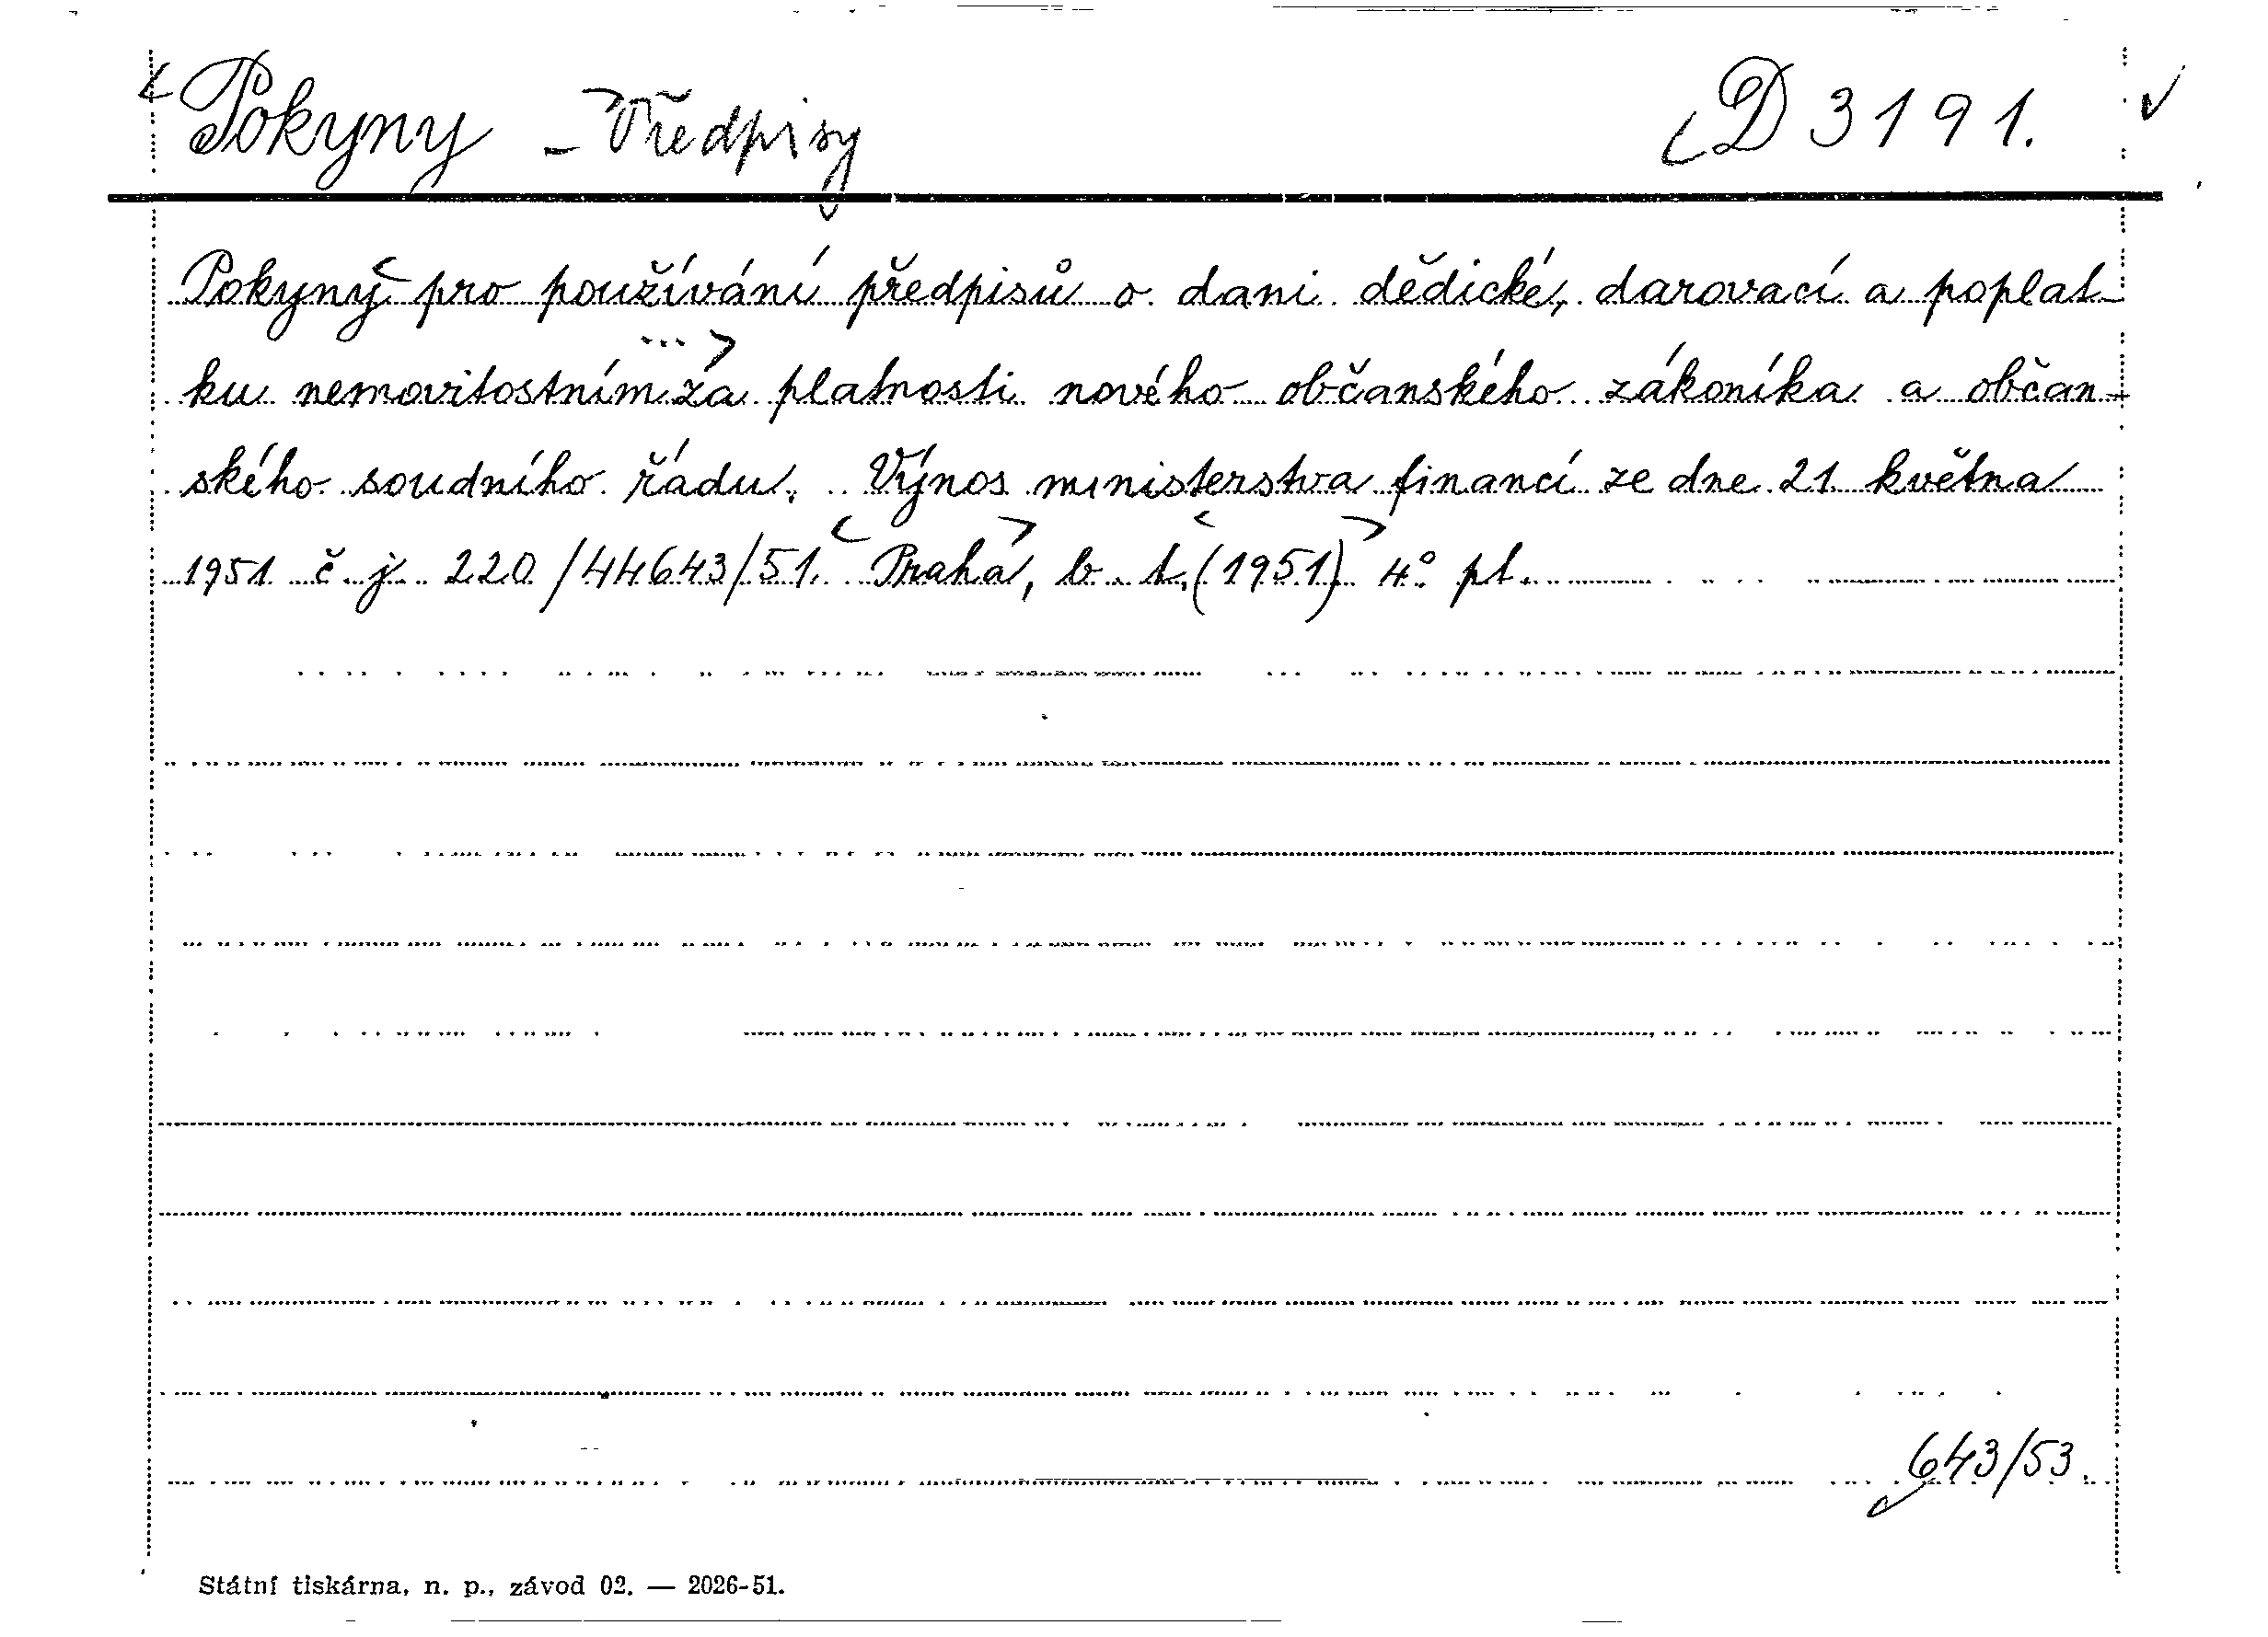 Pokyny - Předpisy D 3191.
Pokyny pro používání předpisů o dani dědické, darovací a poplat-
ku nemovitostním za platnosti nového občanského zákoníka a občan-
ského soudního řádu. Výnos ministerstva financí ze dne 21 května
1951 č j. 220/44643/51. Praha, b. t. (1951) 4° pt.
643/53.
Státní tiskárna, n. p., závod 02. — 2026-51.